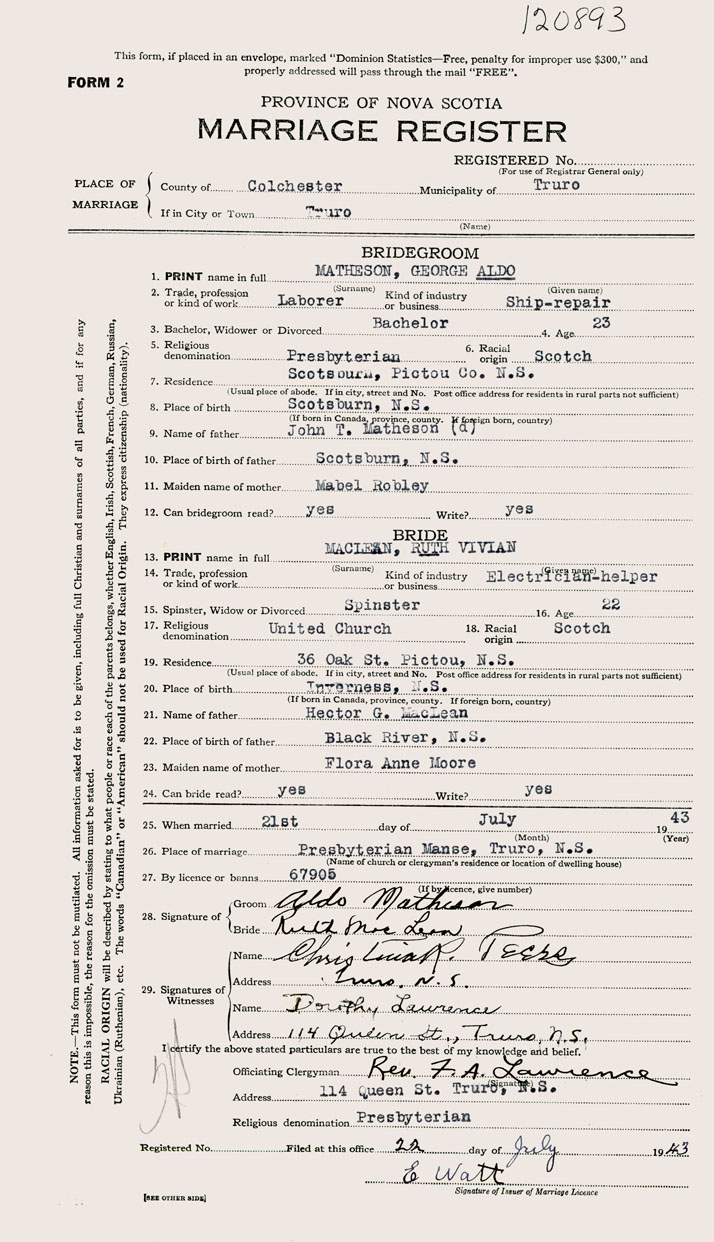 120893
This form, if placed in an envelope, marked "Dominion Statistics—Free, penalty for improper use $300," and
properly addressed will pass through the mail "FREE".
FORM 2
PROVINCE OF NOVA SCOTIA
MARRIAGE REGISTER
REGISTERED No.
(For use of Registrar General only)
PLACE OF MARRIAGE
County of Colchester Municipality of Truro
If in City or Town Truro
(Name)
BRIDEGROOM
1. PRINT name in full MATHESON, GEORGE ALDO
(Surname) (Given name)
2. Trade, profession or kind of work Laborer Kind of industry or business Ship-repair
3. Bachelor, Widower or Divorced Bachelor 4. Age 23
5. Religious denomination Presbyterian 6. Racial origin Scotch
7. Residence Scotsburn, Pictou Co. N.S.
(Usual place of abode. If in city, street and No. Post office address for residents in rural parts not sufficient)
8. Place of birth Scotsburn, N.S.
(If born in Canada, province, county. If foreign born, country)
9. Name of father John T. Matheson (d)
10. Place of birth of father Scotsburn, N.S.
11. Maiden name of mother Mabel Robley
12. Can bridegroom read? yes Write? yes
BRIDE
13. PRINT name in full MACLEAN, RUTH VIVIAN
(Surname) (Given name)
14. Trade, profession or kind of work Kind of industry or business Electrician-helper
15. Spinster, Widow or Divorced Spinster 16. Age 22
17. Religious denomination United Church 18. Racial origin Scotch
19. Residence 36 Oak St. Pictou, N.S.
(Usual place of abode. If in city, street and No. Post office address for residents in rural parts not sufficient)
20. Place of birth Inverness, N.S.
(If born in Canada, province, county. If foreign born, country)
21. Name of father Hector G. MacLean
22. Place of birth of father Black River, N.S.
23. Maiden name of mother Flora Anne Moore
24. Can bride read? yes Write? yes
25. When married 21st day of July 1943
(Month) (Year)
26. Place of marriage Presbyterian Manse, Truro, N.S.
(Name of church or clergyman's residence or location of dwelling house)
27. By licence or banns 67905
(If by licence, give number)
28. Signature of
Groom Aldo Matheson
Bride Ruth Mac Lean
29. Signatures of Witnesses
Name Christina R.
Address Truro, N.S.
Name Dorothy Lawrence
Address 114 Queen St., Truro, N.S.
I certify the above stated particulars are true to the best of my knowledge and belief.
Officiating Clergyman Rev. F. A. Lawrence
(Signature)
Address 114 Queen St. Truro, N.S.
Religious denomination Presbyterian
Registered No. Filed at this office 22 day of July 1943
E Watt
Signature of Issuer of Marriage Licence
[SEE OTHER SIDE]
NOTE.—This form must not be mutilated. All information asked for is to be given, including full Christian and surnames of all parties, and if for any
reason this is impossible, the reason for the omission must be stated.
RACIAL ORIGIN will be described by stating to what people or race each of the parents belongs, whether English, Irish, Scottish, French, German, Russian,
Ukrainian (Ruthenian), etc. The words "Canadian" or "American" should not be used for Racial Origin. They express citizenship (nationality).